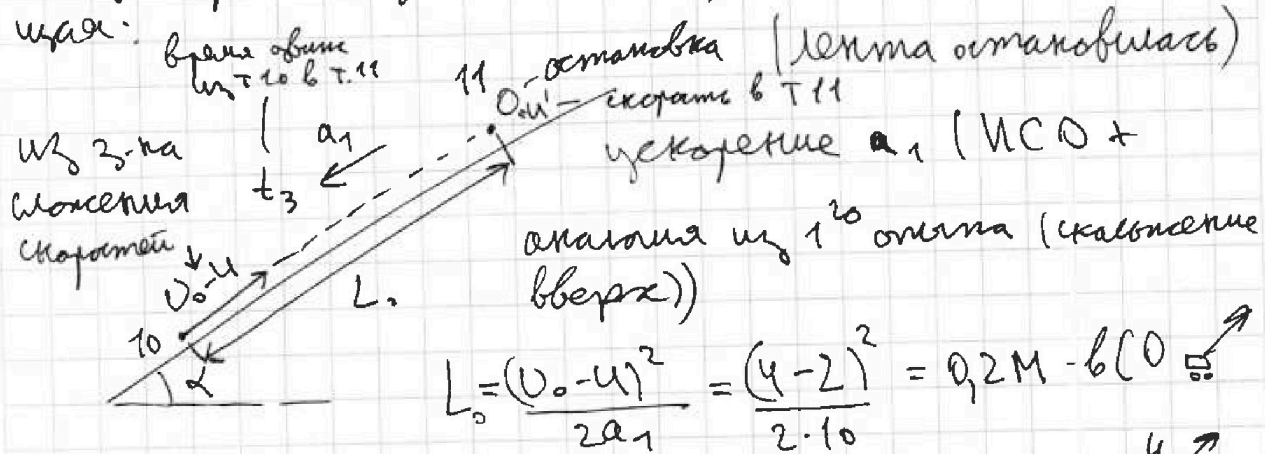 щая:
время движ
из т 10 в т. 11
11 остановка (лента остановилась)
0.u' - скорость в т 11
из з-на
сложения
скоростей
a₁
t₃
ускорение a₁ (ИСО +
аналогия из 1²⁰ опыта (скольжение
вверх))
υ₀-u
L₀
10
α
L₀ = (υ₀-u)²/2a₁ = (4-2)²/2·10 = 0,2 м - в СО
u